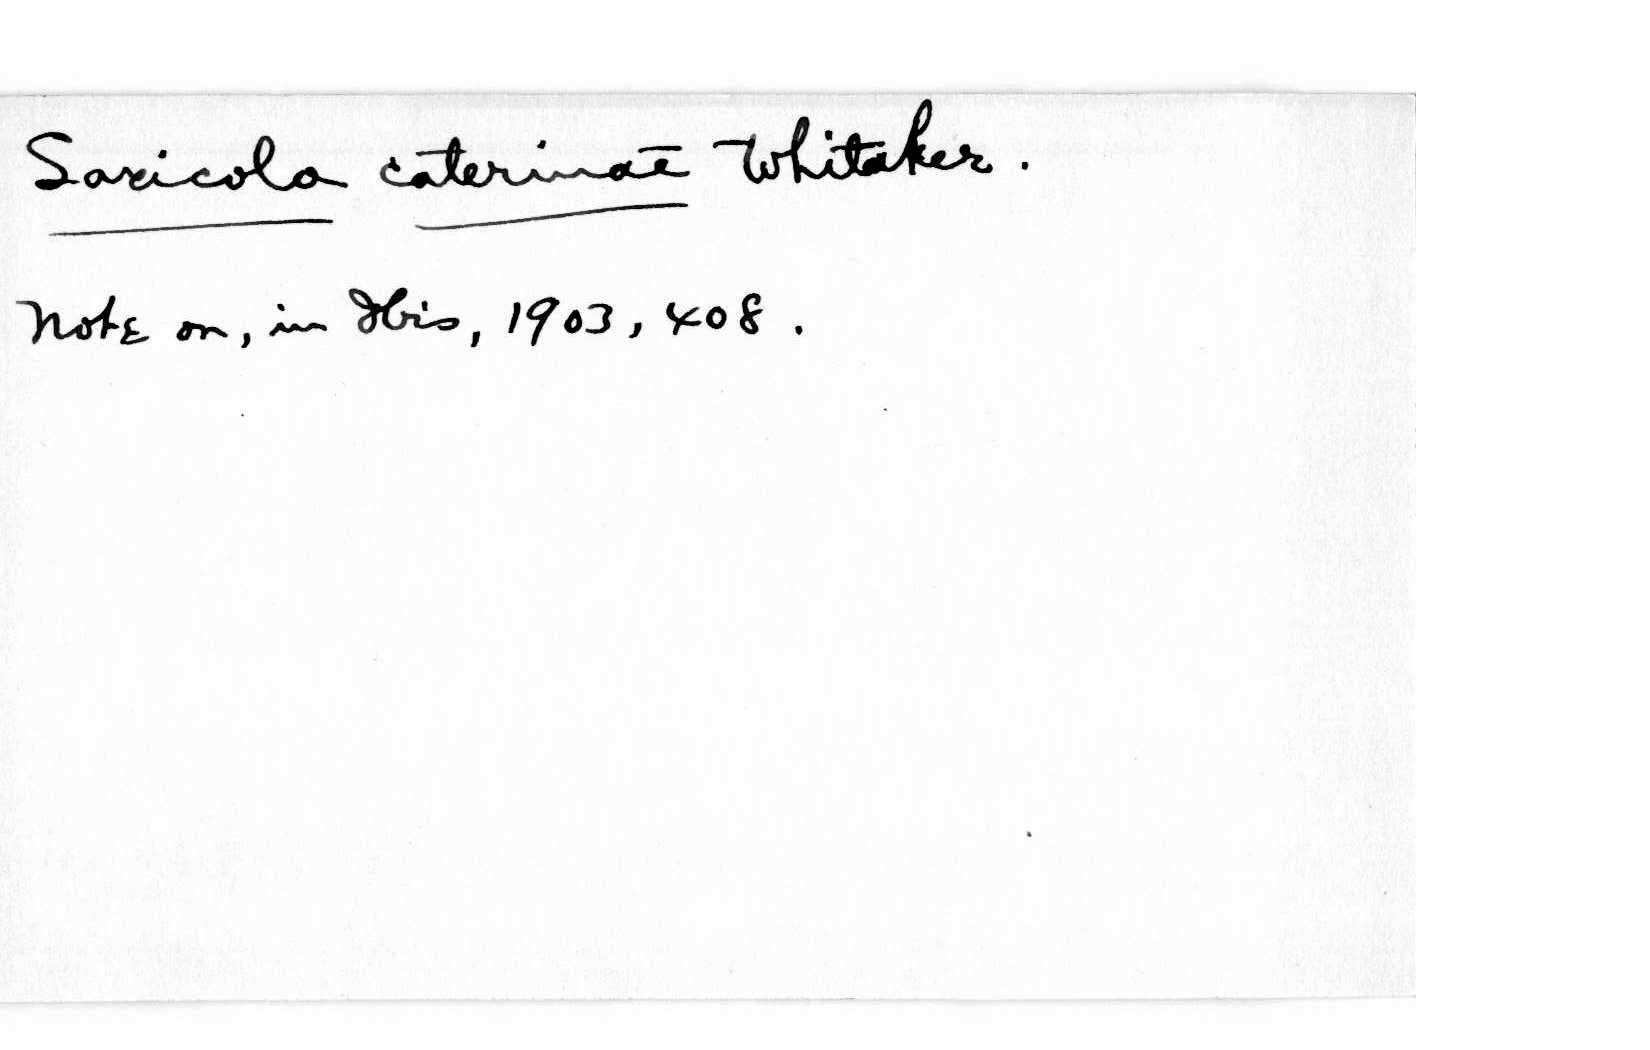 Saxicola caterinae Whitaker.
Note on, in Ibis, 1903, 408.